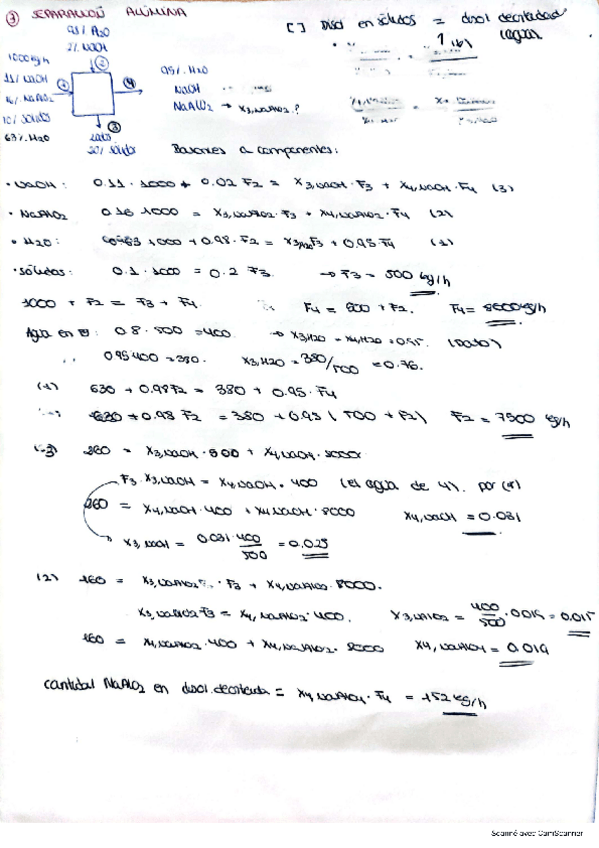 ③ SEPARACIÓN ALÚMINA
[ ] Disol en sólidos = disol decantada
98% H2O
2% NaOH
1000 kg/h
11% NaOH
16% NaAlO2
10% sólidos
63% H2O
95% H2O
NaOH
NaAlO2 → x3,NaAlO2?
20% sólidos
Balances a componentes:
· NaOH: 0.11 · 1000 + 0.02 F2 = x3,NaOH · F3 + x4,NaOH · F4 (3)
· NaAlO2 0.16 1000 = x3,NaAlO2 · F3 + x4,NaAlO2 · F4 (2)
· H2O: 1000 + 0.98 · F2 = x3,H2O F3 + 0.95 · F4 (1)
· sólidos: 0.1 · 1000 = 0.2 F3. → F3 = 500 kg/h
1000 + F2 = F3 + F4. F4 = 500 + F2. F4 = 8000 kg/h
Agua en 0.8 · 500 = 400. → x3,H2O = x4,H2O = 0.95. (Dato)
0.95 400 = 380. x3,H2O = 380/500 = 0.76.
(1) 630 + 0.98 F2 = 380 + 0.95 · F4
630 + 0.98 F2 = 380 + 0.95 (500 + F2) F2 = 7500 kg/h
(3) 260 = x3,NaOH · 500 + x4,NaOH · 8000
F3 · x3,NaOH = x4,NaOH · 400 (el agua de 4). por (*)
260 = x4,NaOH · 400 + x4,NaOH · 8000 x4,NaOH = 0.031
x3,NaOH = 0.031 · 400 / 500 = 0.025
(2) 160 = x3,NaAlO2 · F3 + x4,NaAlO2 · 8000.
x3,NaAlO2 · F3 = x4,NaAlO2 · 400. x3,NaAlO2 = 400/500 · 0.019 = 0.015
160 = x4,NaAlO2 · 400 + x4,NaAlO2 · 8000 x4,NaAlO2 = 0.019
cantidad NaAlO2 en disol. decantada = x4,NaAlO2 · F4 = 152 kg/h
Scanné avec CamScanner